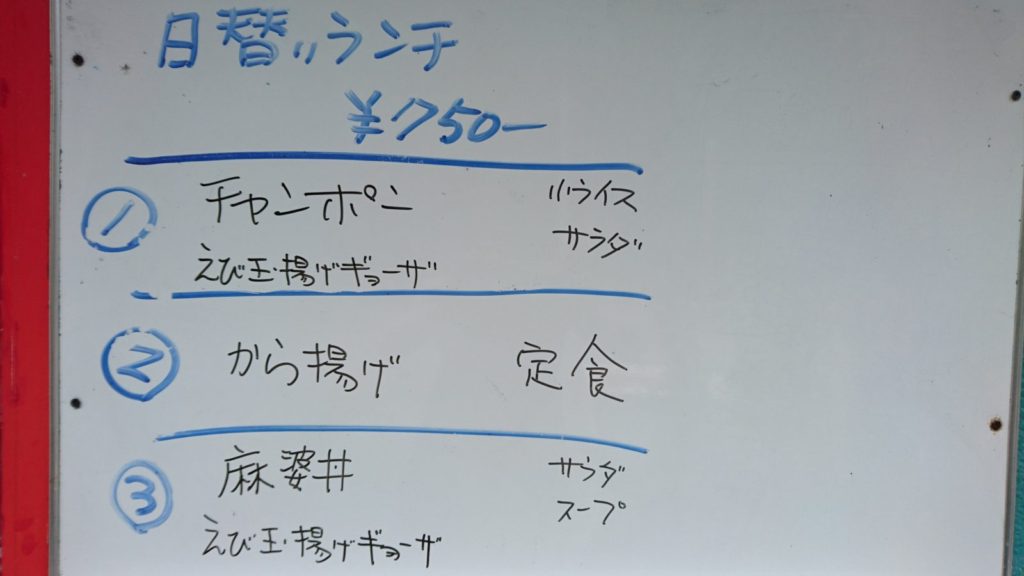 日替りランチ
¥750ー
① チャンポン 小ライス
サラダ
えび玉・揚げギョーザ
② から揚げ 定食
③ 麻婆丼 サラダ
スープ
えび玉・揚げギョーザ